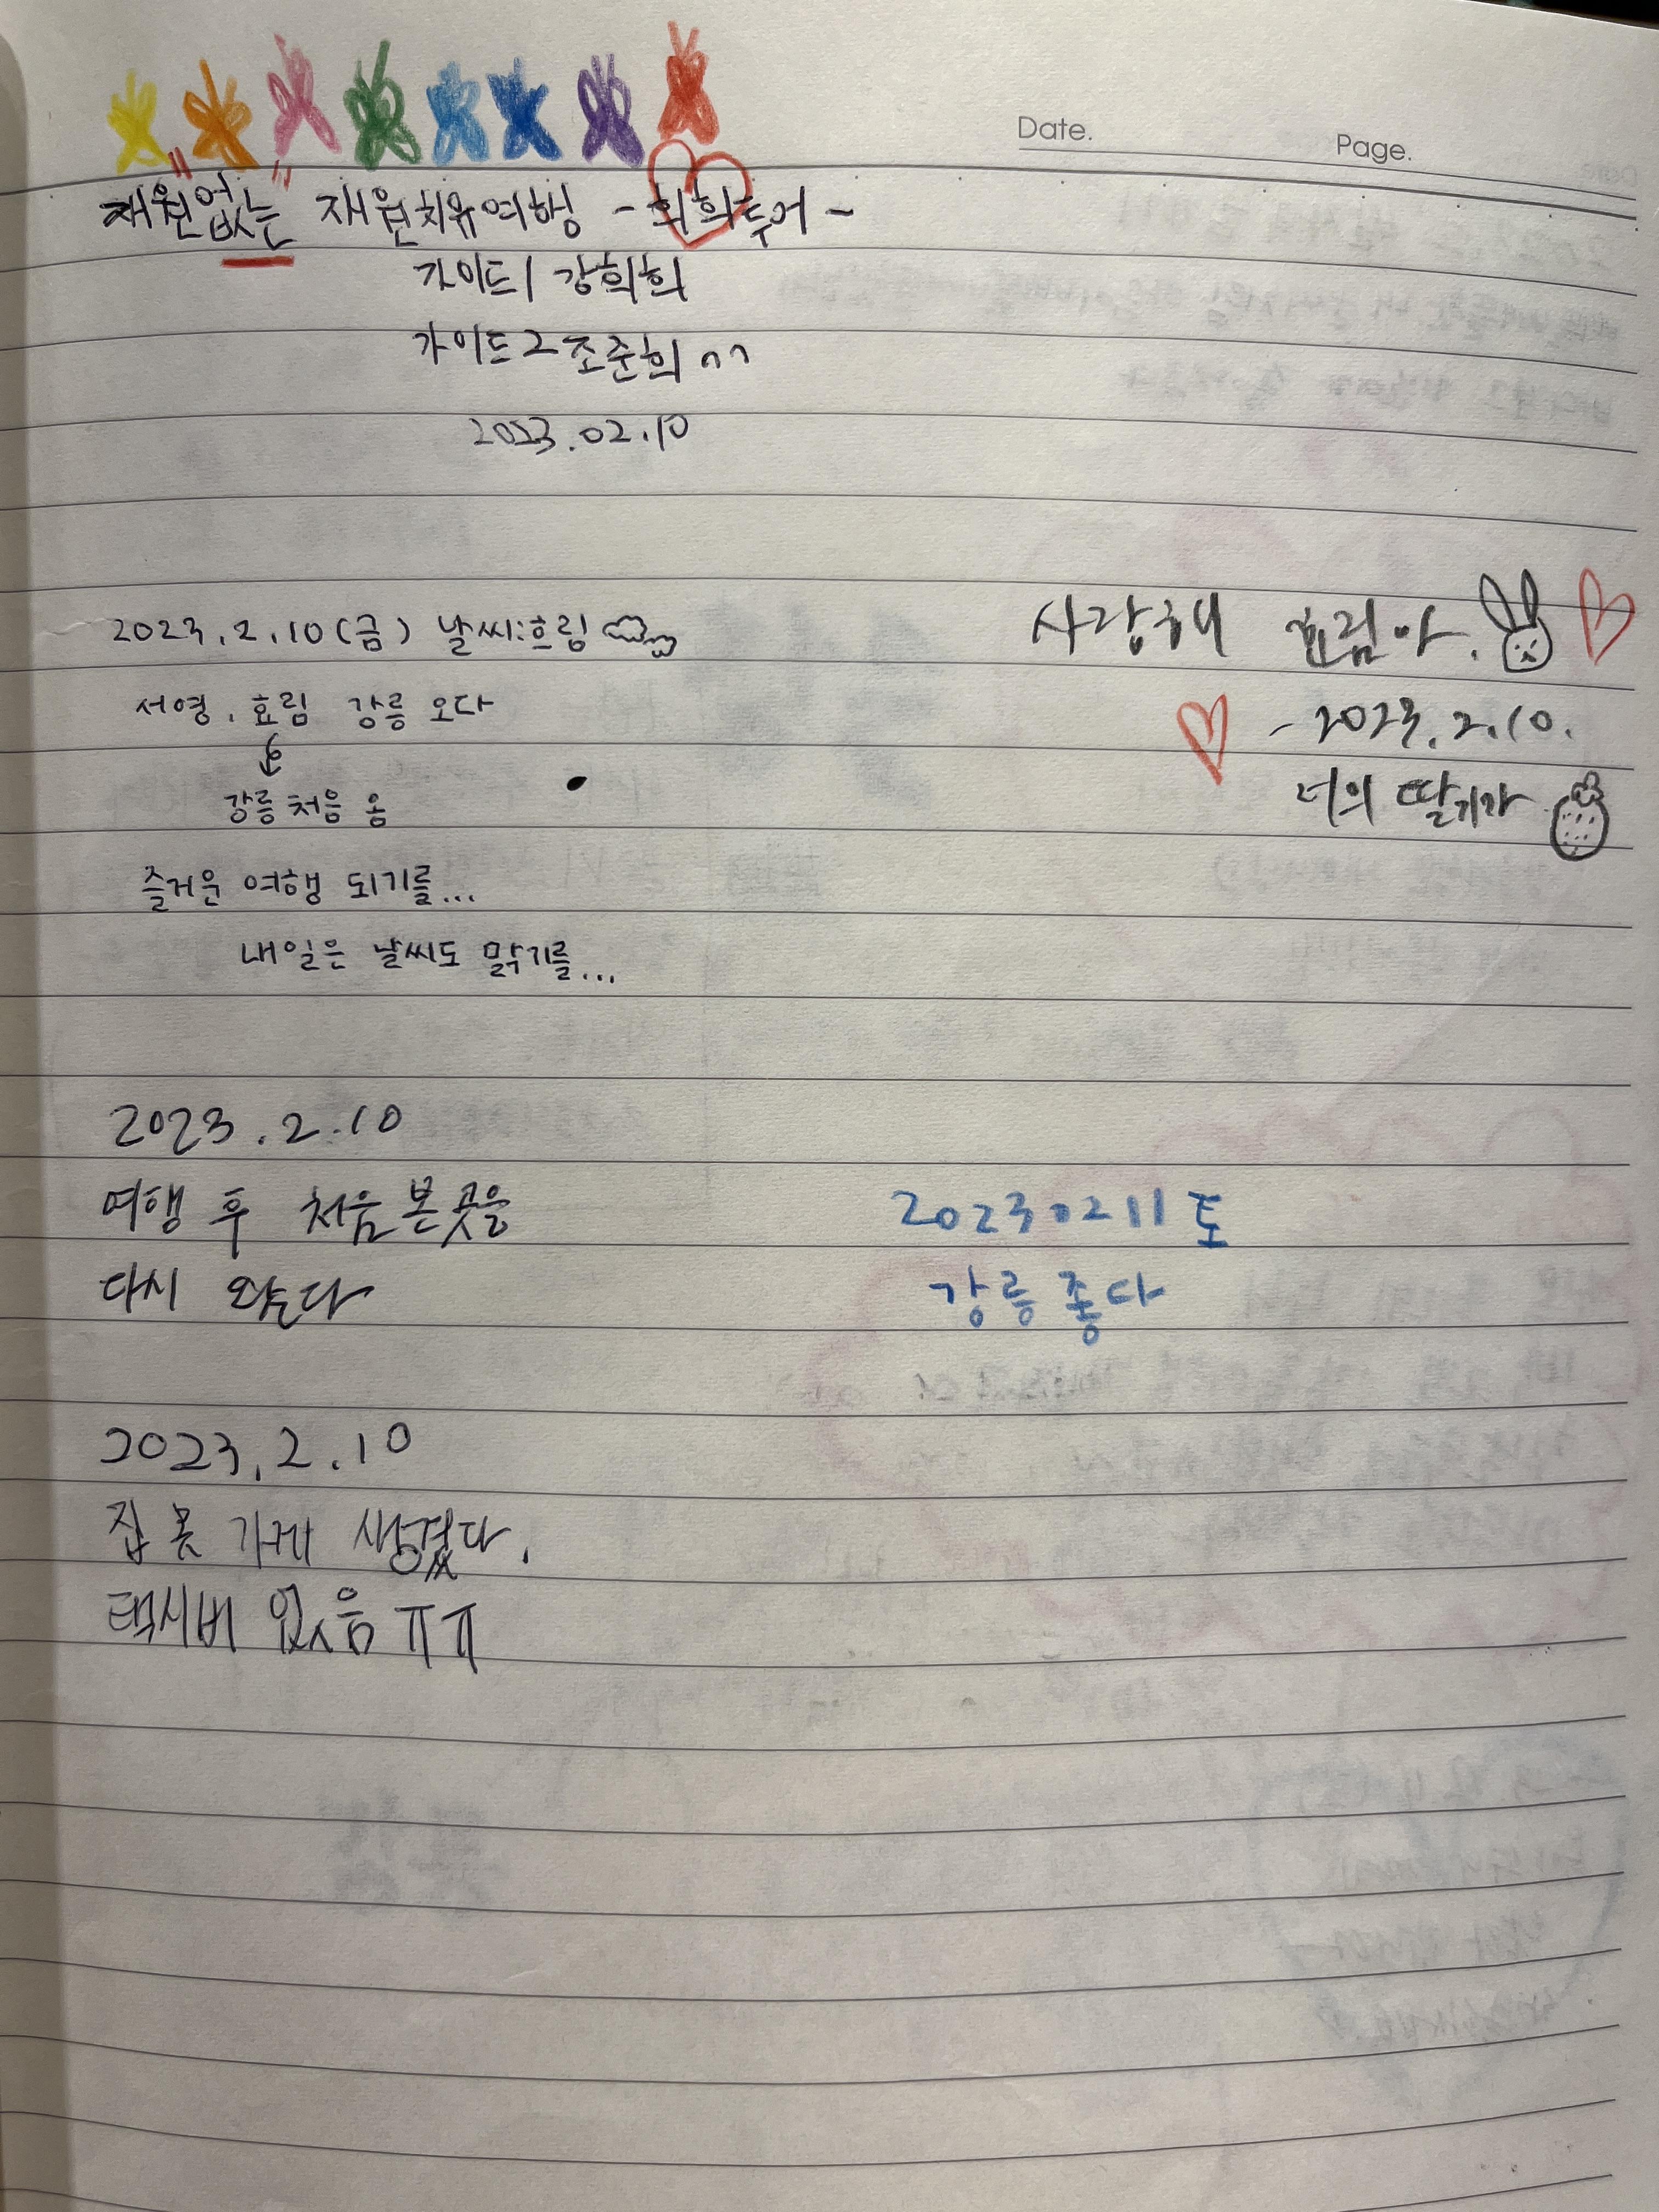 Date.
Page.
재원"없는" 재원치유여행 - 희희투어 -
가이드1 강희희
가이드2 조준희 ^^
2023.02.10
2023.2.10(금) 날씨:흐림
서영, 효림 강릉 오다
강릉 처음 옴
즐거운 여행 되기를...
내일은 날씨도 맑기를...
사랑해 효림아.
- 2023.2.10.
너의 딸기가
2023.2.10
여행 후 처음 본 곳을
다시 왔다
20230211 토
강릉 좋다
2023.2.10
집 못 가게 생겼다.
택시비 없음 ㅠㅠ